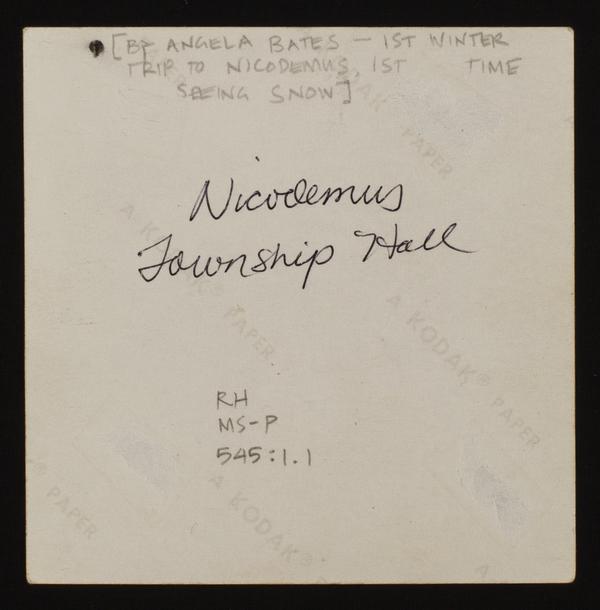 [BY ANGELA BATES — 1ST WINTER
TRIP TO NICODEMUS, 1ST TIME
SEEING SNOW]
KODAK PAPER
Nicodemus
Township Hall
A KODAK PAPER
A KODAK® PAPER
RH
MS-P
545:1.1
® PAPER
A KODAK® P
A